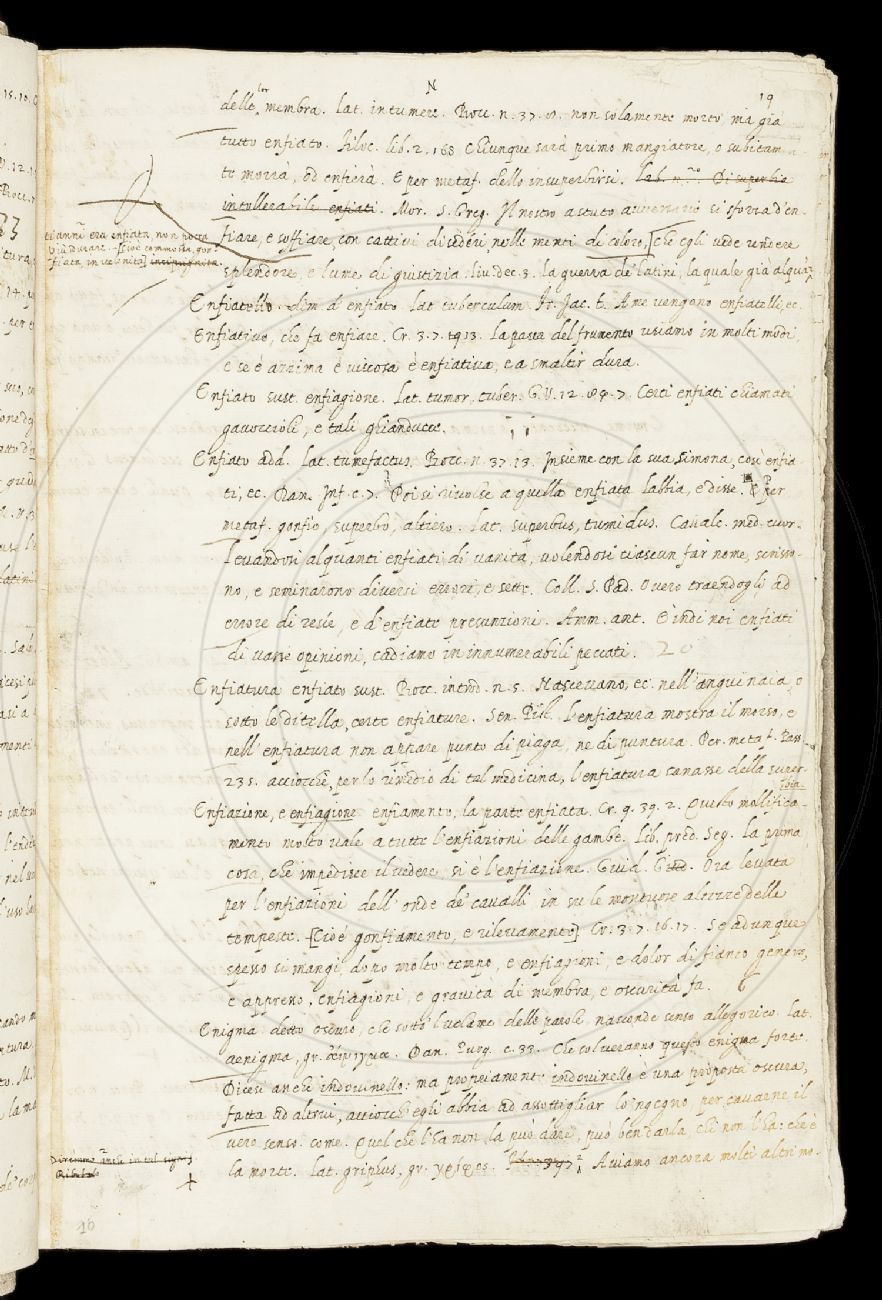 N
19
delle lor membra. lat. intumere. Bocc. n. 37. 8. non solamente morto ma già
tutto enfiato. Filoc. lib. 2. 168 Chiunque sarà primo mangiatore, o subitam
te morrà, od enfierà. E per metaf. dello insuperbirsi. Di superbia
intollerabile enfiati. Mor. S. Greg. Il nostro astuto avversario si sforza d'en
fiare, e soffiare, con cattivi desideri, nelle menti di coloro, [che egli vede rendere
splendore, e lume di giustizia. liv. dec. 3. la guerra de' latini, la quale già alquan
Enfiatello. dim. d'enfiato lat. tuberculum. Fr. Jac. t. A me vengono enfiatelli, ec.
Enfiativo, che fa enfiare. Cr. 3. 7. 13. la pasta del frumento usiamo in molti modi,
e se è azzima è viscosa è enfiativa, e a smaltir dura.
Enfiato sust. enfiagione. Lat. tumor, tuber. G. V. 12. 84. 7. Certi enfiati chiamati
gavoccioli, e tali ghianducce.
Enfiato add. Lat. tumefactus. Bocc. n. 37. 13. Insieme con la sua Simona, così enfia
ti, ec. Dan. Inf. c. 7. Poi si rivolse a quella enfiata labbia, e disse. E per
metaf. gonfio, superbo, altiero. lat. superbus, tumidus. Cavalc. med. cuor.
levandosi alquanti enfiati di vanità, volendosi ciascun far nome, scrisso
no, e seminarono diversi errori, e sette. Coll. S. Pad. Overo traendogli ad
errore di resie, e d'enfiate presunzioni. Amm. ant. E indi noi enfiati
di varie opinioni, cadiamo in innumerabili peccati. 20
Enfiatura enfiato sust. Bocc. introd. n. 5. Nascevano, ec. nell'anguinaia, o
sotto le ditella, certe enfiature. Sen. Pist. l'enfiatura mostra il morso, e
nell'enfiatura non appare punto di piaga, ne di puntura. Per metaf. Pass.
235. acciocchè, per lo rimedio di tal medicina, l'enfiatura sanasse della super
bia.
Enfiazione, e enfiagione enfiamento, la parte enfiata. Cr. 9. 39. 2. Questo mollifica
mento molto vale a tutte l'enfiazioni delle gambe. Lib. pred. Seg. la prima
cosa, che impedisce il vedere si è l'enfiazione. Guid. Giud. Ora levata
per l'enfiazioni dell'onde de' cavalli in su le montuose altezze delle
tempeste. [Cioè gonfiamento, e rilevamento] Cr. 3. 7. 16. 17. Se adunque
spesso si mangi, dopo molto tempo, e enfiagioni, e dolor di fianco genera,
e appresso. enfiagioni, e gravità di membra, e oscurità fa.
Enigma detto oscuro, che sotto 'l velame delle parole nasconde senso allegorico. lat.
aenigma, gr. αἴνιγμα. Dan. Purg. c. 33. Che solveranno questo enigma forte.
Dicesi anche indovinello: ma propriamente indovinello è una proposta oscura,
fatta ad altrui, acciocch'egli abbia ad assottigliar lo ingegno, per cavarne il
vero senso. come. Quel che l'ha non la può dare, può ben darla, chi non l'ha: che è
la morte. lat. griphus, gr. γρίφος. Aviamo ancora molti altri no
ti anni era enfiata, non potea
più durare. [cioè commossa, gon
fiata, inveleinita] incipugnita.
Diremmo anche in tal signif.
10